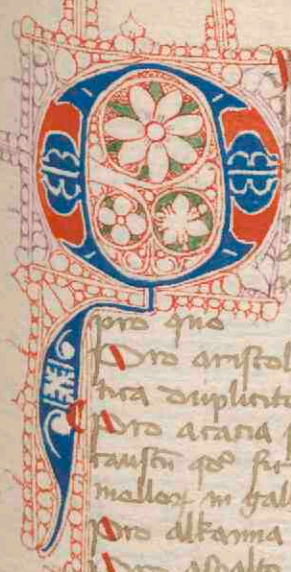 Q
pro quo
Pro aristol
tica duplicita
Pro acacia
mellor in gall
Pro alkanna
Pro aspalto